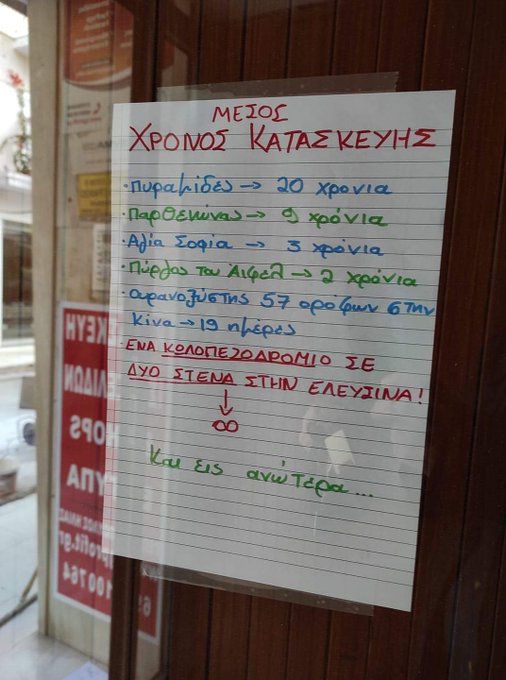 ΜΕΣΟΣ
ΧΡΟΝΟΣ ΚΑΤΑΣΚΕΥΗΣ
·Πυραμίδες → 20 χρονια
·Παρθενώνας → 9 χρόνια
·Αγία Σοφία → 3 χρόνια
·Πύργος του Αιφελ → 2 χρόνια
·ουρανοξύστης 57 οροφων στην
Κινα → 19 ημέρες
·ΕΝΑ ΚΩΛΟΠΕΖΟΔΡΟΜΙΟ ΣΕ
ΔΥΟ ΣΤΕΝΑ ΣΤΗΝ ΕΛΕΥΣΙΝΑ!
↓
∞
Και εις ανώτερα...
ΣΚΕΥΗ
ΕΛΙΔΩΝ
HOPS
ΤΥΠΑ
profit.gr
100764